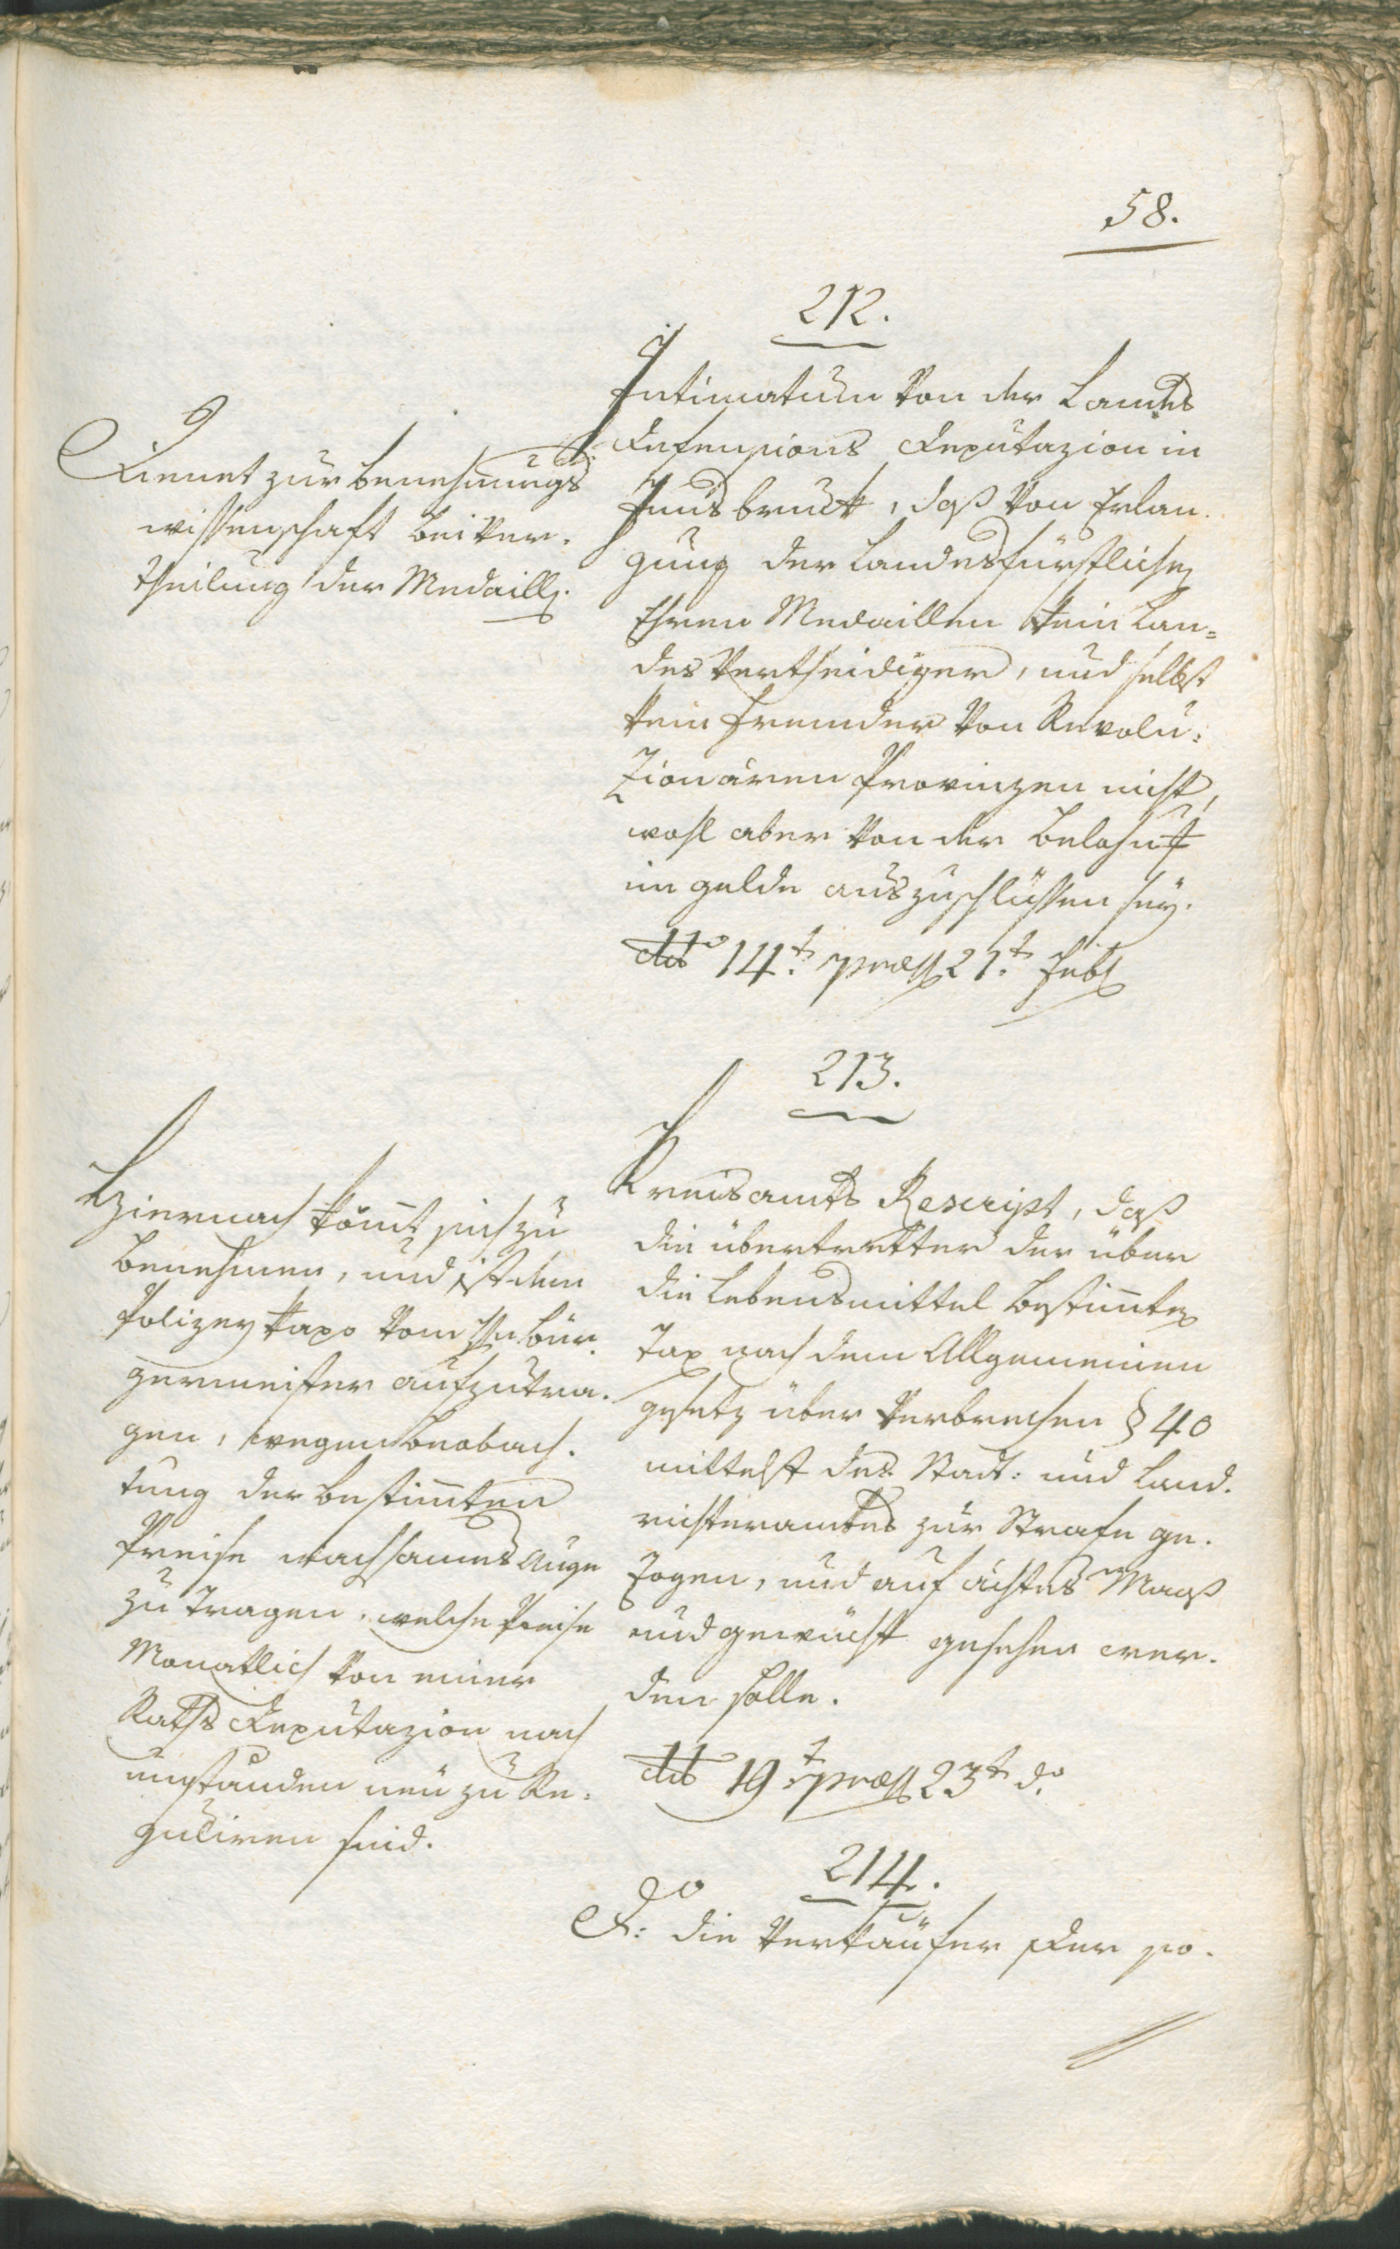 58.
212.
Intimatum von der Landes
Defensions Deputazion in
Innsbruck, daß von Erlan¬
gung der Landesfürstlichen
Ehren Medaillen kein Lan¬
des Vertheidiger, und selbst
kein Fremder von Revolu¬
zionären Provinzen nicht,
wohl aber von der Belohng
im gelde auszuschlüssen sey.
ddto 14t. præs 21t. Feb
Dienet zur benehmungs
wissenschaft bei Ver¬
theilung der Medaillen.
213.
Kreisamts Rescript, daß
die übertretter der über
die Lebensmittel bestimten
Tax nach dem Allgemeinen
gesetz über Verbrechen § 40
mittelst des Stadt: und Land¬
richteramtes zur Strafe ge¬
zogen, und auf ächtes Maaß
und gewücht gesehen wer¬
den solle.
ddto 19t præs 23t do.
Hiernach kömt sich zu
benehmen, und ist dem
Polizey vom Hn bür¬
germeister aufzutra¬
gen, wegen beobach¬
tung der bestimten
Preise wachsames Auge
zu tragen, welche Preise
Monatlich von einer
Raths Deputazion nach
umständen neu zu Re¬
guliren sind.
214.
Do: die Verkäufer der po¬